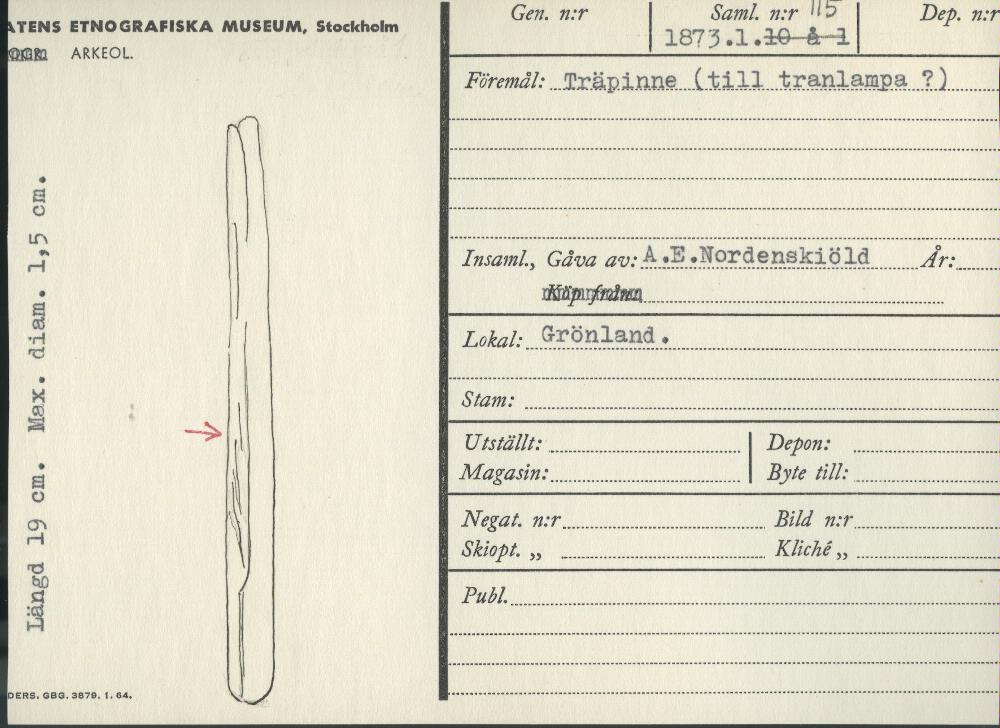 ATENS ETNOGRAFISKA MUSEUM, Stockholm
ARKEOL.
Längd 19 cm. Max. diam. 1,5 cm.
DERS. GBG. 3879. 1. 64.
Gen. n:r
Saml. n:r 115
Dep. n:r
1873.1.10 å 1
Föremål: Träpinne (till tranlampa ?)
Insaml., Gåva av: A.E.Nordenskiöld År:
Köp från:
Lokal: Grönland.
Stam:
Utställt: Depon:
Magasin: Byte till:
Negat. n:r Bild n:r
Skiopt. „ Kliché „
Publ.